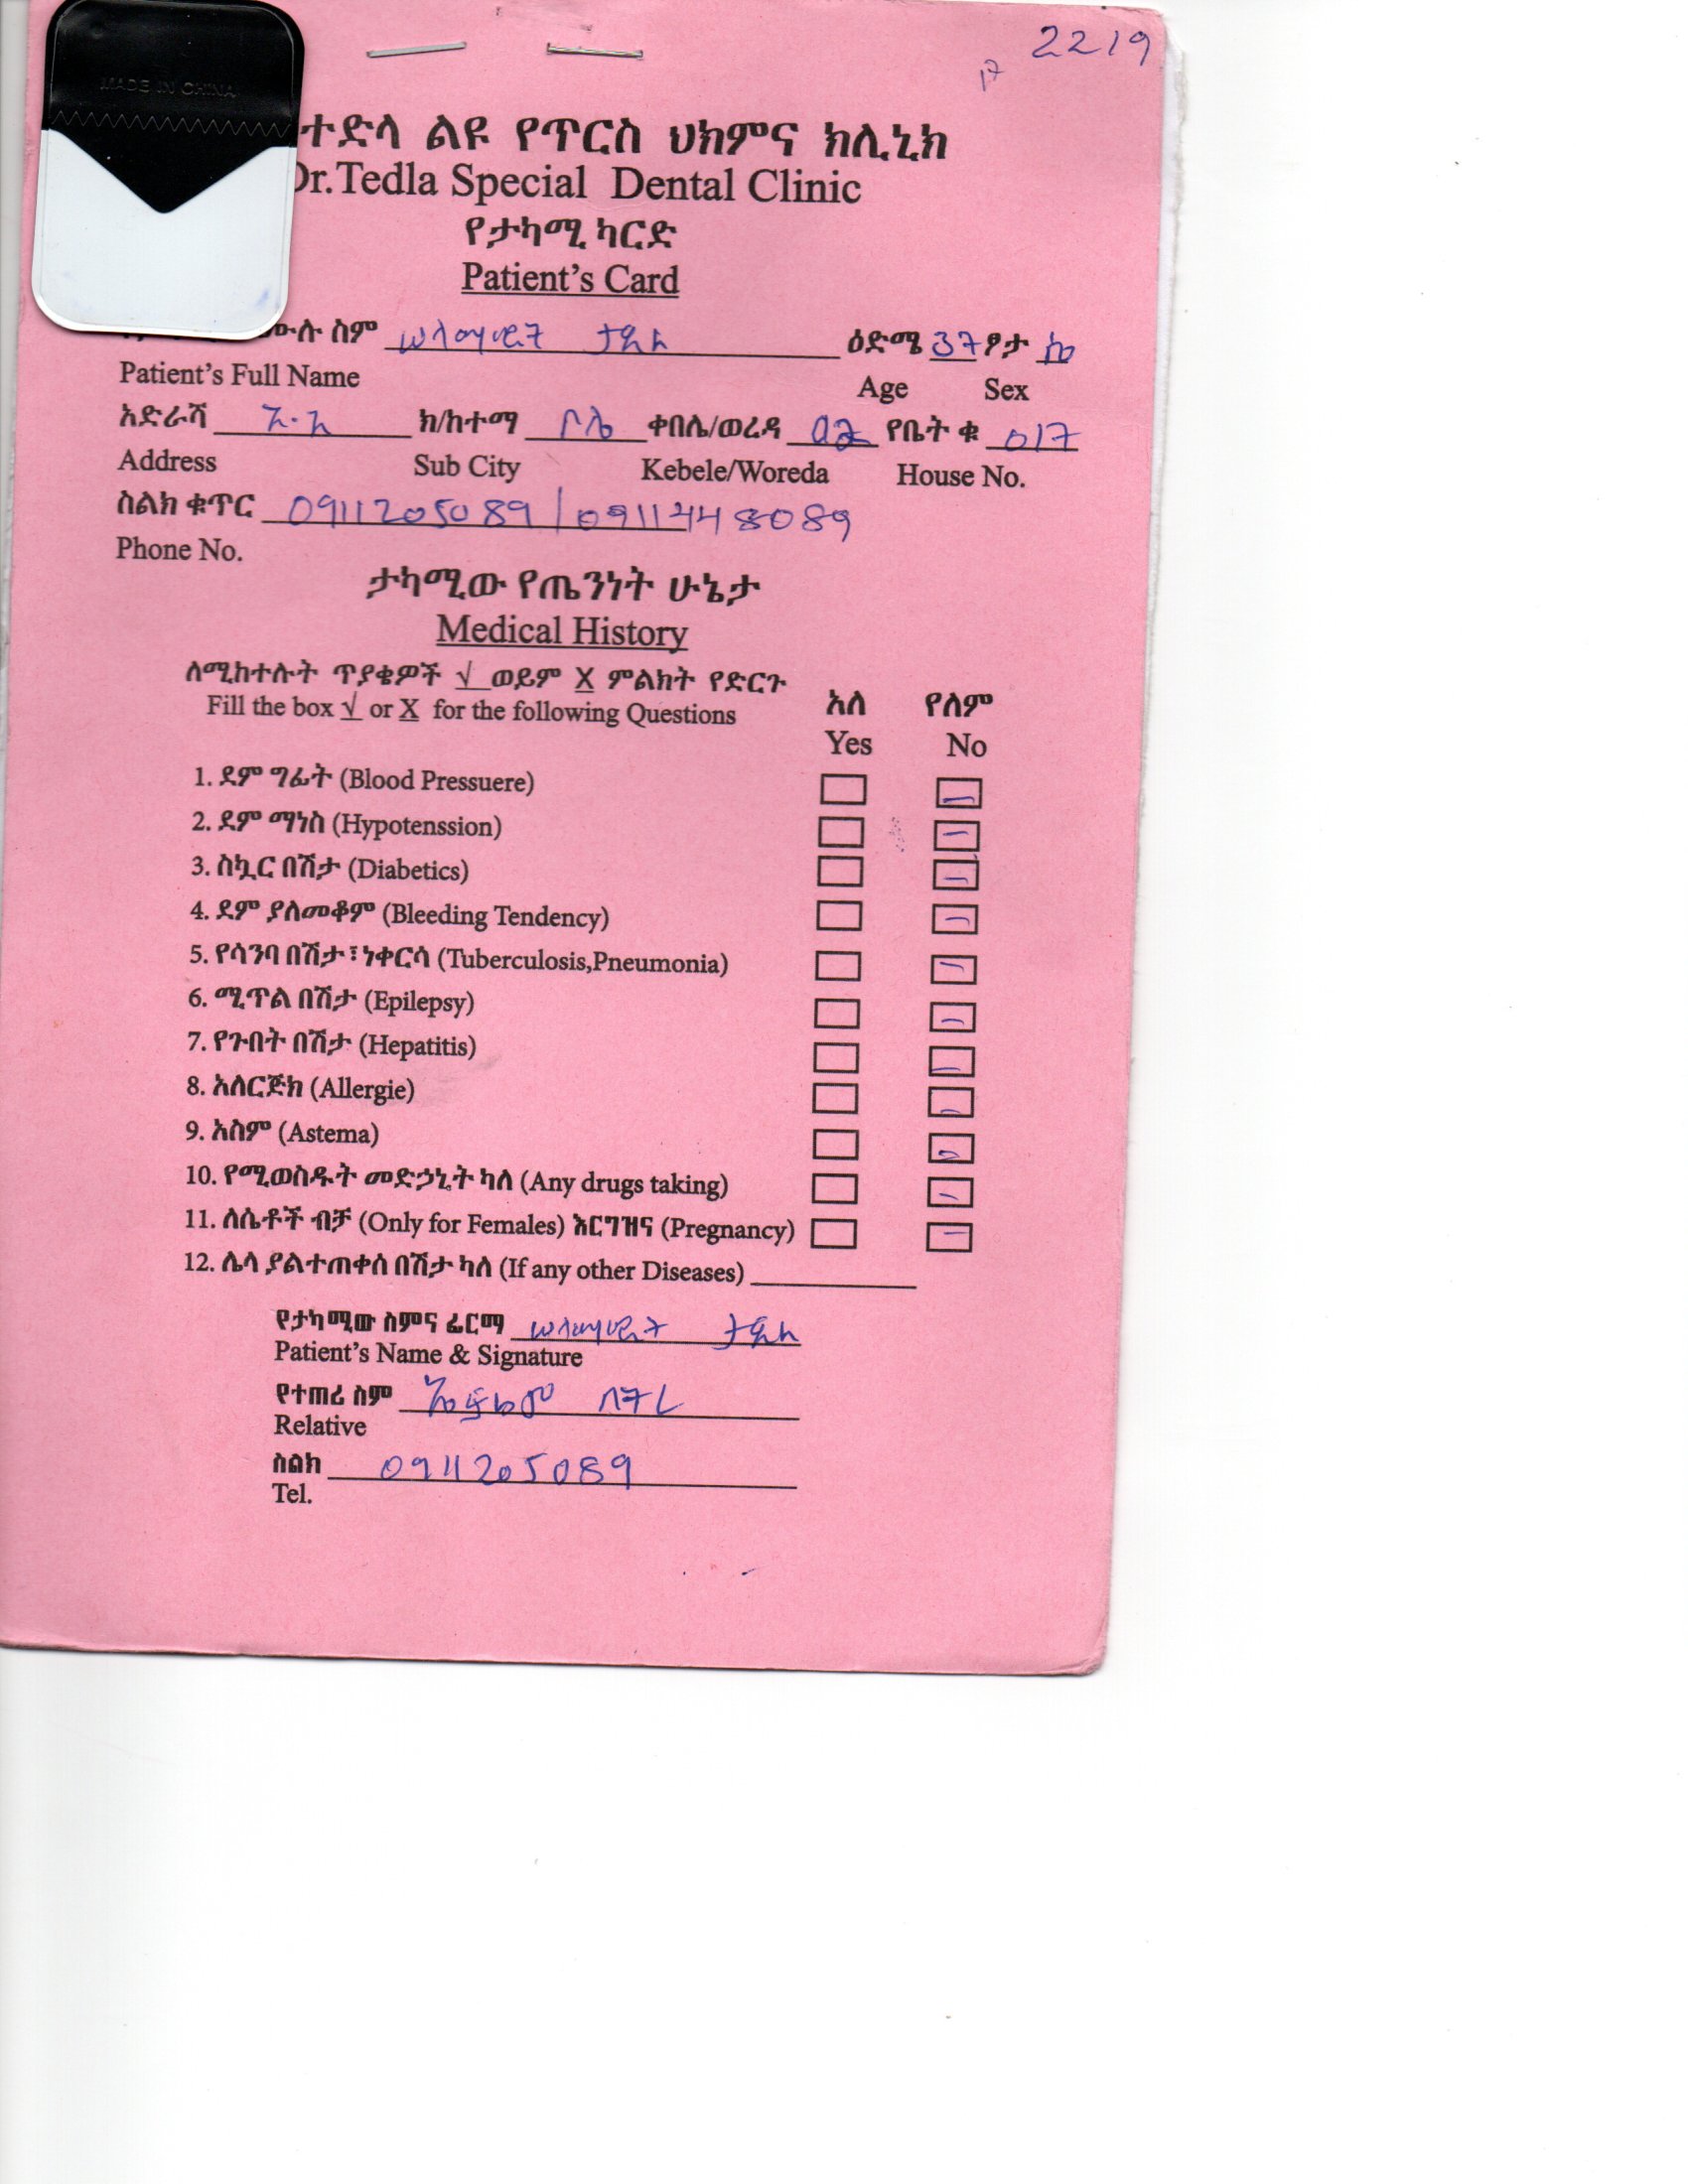 MADE IN CHINA
2219
17
ተድላ ልዩ የጥርስ ህክምና ክሊኒክ
Dr.Tedla Special Dental Clinic
የታካሚ ካርድ
Patient's Card
ሙሉ ስም ዕድሜ 37 ፆታ ሴ
Patient's Full Name Age Sex
አድራሻ አ.አ ክ/ከተማ ቦሌ ቀበሌ/ወረዳ 02 የቤት ቁ 017
Address Sub City Kebele/Woreda House No.
ስልክ ቁጥር 0911205089 / 0911448089
Phone No.
ታካሚው የጤንነት ሁኔታ
Medical History
ለሚከተሉት ጥያቄዎች √ ወይም X ምልክት የድርጉ
Fill the box √ or X for the following Questions
አለ የለም
Yes No
1. ደም ግፊት (Blood Pressuere)
2. ደም ማነስ (Hypotenssion)
3. ስኳር በሽታ (Diabetics)
4. ደም ያለመቆም (Bleeding Tendency)
5. የሳንባ በሽታ፣ነቀርሳ (Tuberculosis,Pneumonia)
6. ሚጥል በሽታ (Epilepsy)
7. የጉበት በሽታ (Hepatitis)
8. አለርጅክ (Allergie)
9. አስም (Astema)
10. የሚወስዱት መድኃኒት ካለ (Any drugs taking)
11. ለሴቶች ብቻ (Only for Females) እርግዝና (Pregnancy)
12. ሌላ ያልተጠቀሰ በሽታ ካለ (If any other Diseases)
የታካሚው ስምና ፊርማ
Patient's Name & Signature
የተጠሪ ስም ኤፍሬም
Relative
ስልክ 0911205089
Tel.